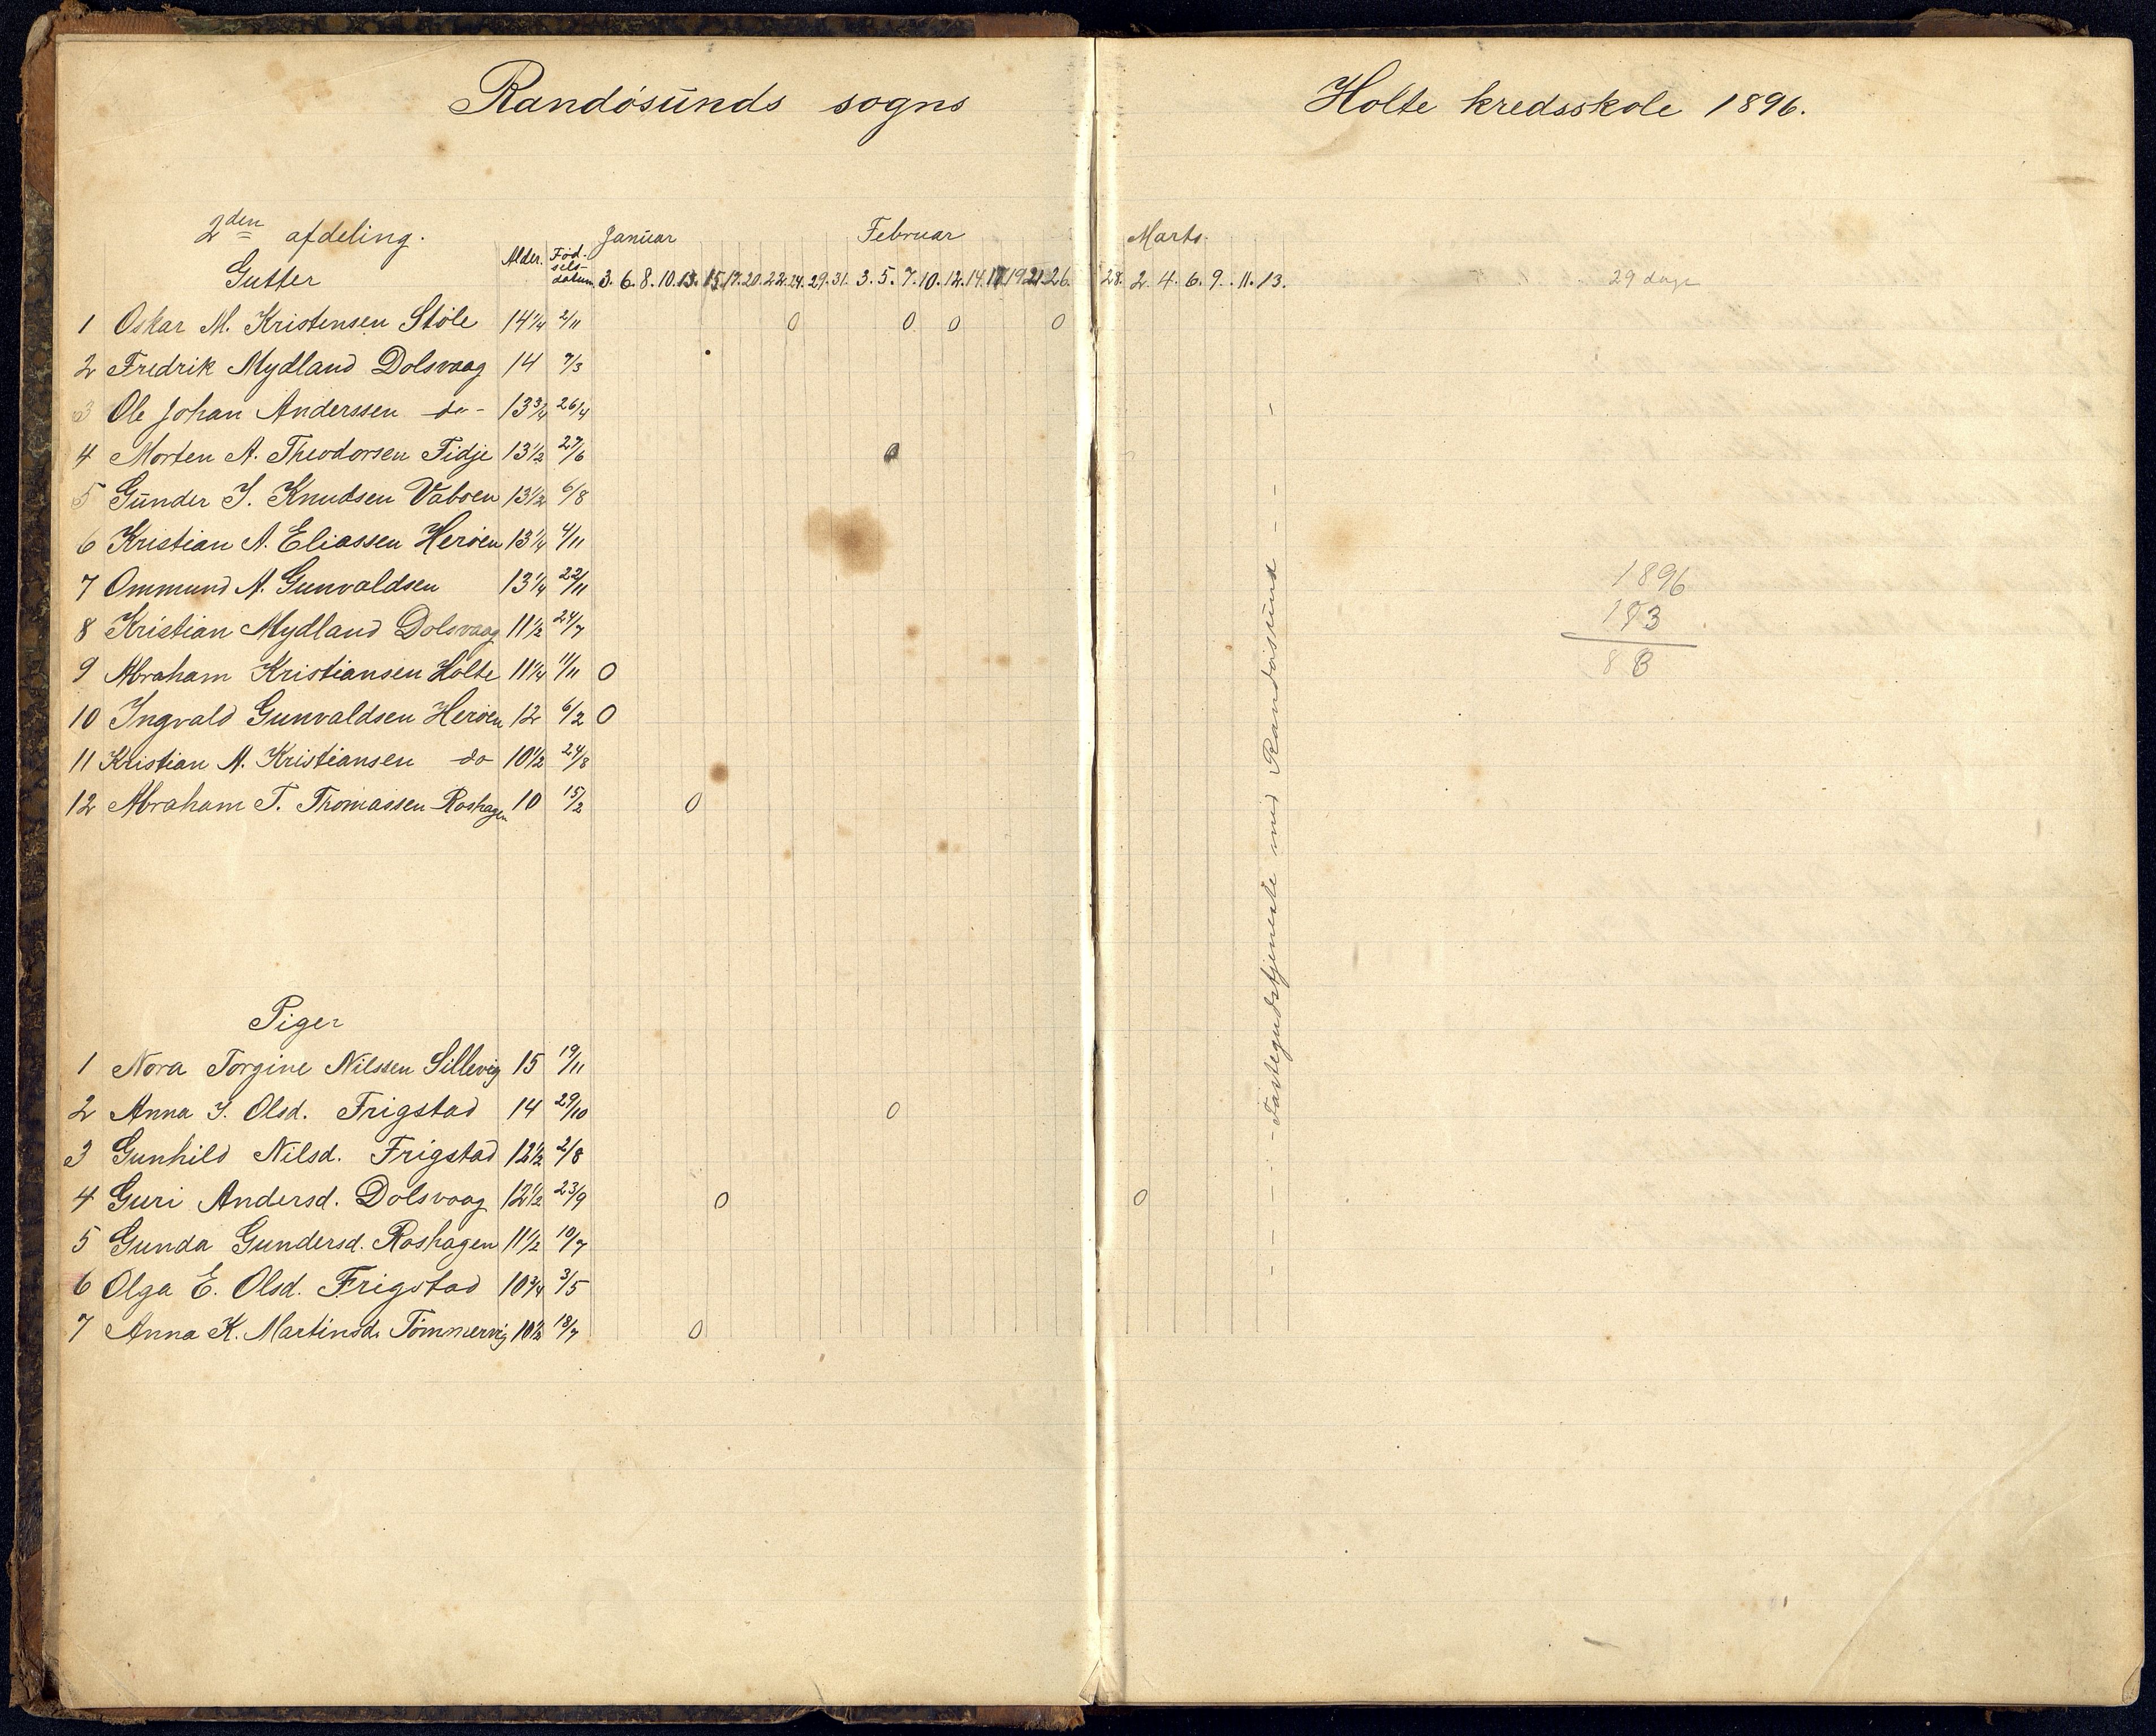 Randösunds sogns
Holte kredsskole 1896.
2den afdeling.
Januar Februar Marts.
Gutter Alder. Föd-sels-datum 3. 6. 8. 10. 13. 15. 17. 20. 22. 24. 29. 31. 3. 5. 7. 10. 12. 14. 17. 19. 21. 26. 28. 2. 4. 6. 9. 11. 13. 29 dage
1 Oskar M. Kristensen Stöle 14 1/4 2/11 0 0 0 0
2 Fredrik Mydland Dolsvaag 14 7/3
3 Ole Johan Anderssen -do- 13 3/4 26/4
4 Morten A. Theodorsen Fidje 13 1/2 27/6 0
5 Gunder J. Knudsen Vaböen 13 1/2 6/8
6 Kristian A. Eliassen Heröen 13 1/4 4/11
7 Ommund A. Gunvaldsen 13 1/4 22/11
8 Kristian Mydland Dolsvaag 11 1/2 24/7
9 Abraham Kristiansen Holte 11 1/4 11/11 0
10 Ingvald Gunvaldsen Heröen 12 6/2 0
11 Kristian A. Kristiansen do 10 1/2 24/8
12 Abraham T. Thomassen Roshagen 10 15/2 0
Fastegudstjeneste ved Randösund
1896
88
Piger
1 Nora Torgine Nilssen Sillevig 15 19/11
2 Anna J. Olsd. Frigstad 14 29/10 0
3 Gunhild Nilsd. Frigstad 12 1/2 2/8
4 Guri Andersd. Dolsvaag 12 1/2 23/9 0 0
5 Gunda Gundersd. Roshagen 11 1/2 10/7
6 Olga E. Olsd. Frigstad 10 3/4 3/5
7 Anna K. Martinsd. Tömmervig 10 1/2 18/7 0